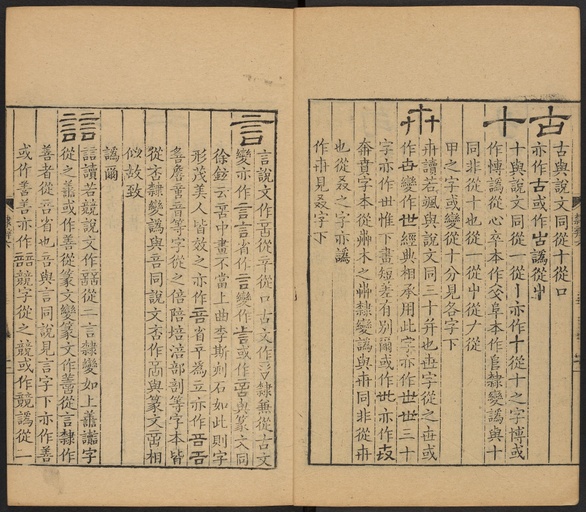 古
古與說文同從十從口
亦作古或作
十
十與說文同從一從丨亦作十從十之字博或
作博譌從心卒本作
阜本作
隸變譌與十
同非從十也從一從
甲之字或變從十分見各字下
卅
卅讀若颯與說文同三十幷也世字從之世或
作世變作世經典相承用此字亦作世世三十
字亦作世惟下畫短差有別爾或作世亦作
奔賁字本從艸木之艸隸變譌與卅同非從卅
也從
之字亦譌
作卅見
字下
言
言說文作
從口古文作
隸無從古文
變亦作言言省作言變作
與篆文同
徐鉉云
中畫不當上曲李斯刻石如此則字
形茂美人皆效之亦作
省
爲立亦作
善
童音等字從之倍陪培涪部剖等字本皆
從
隸變譌與音同說文
與篆文
相
似故致
譌爾
誩
誩讀若競說文作
從二言隸變如上
字
從之善或作善從篆文變篆文作
從言隸作
善者從音省也音與言同說見言字下亦作善
或作善亦作
競字從之競或作競譌從一